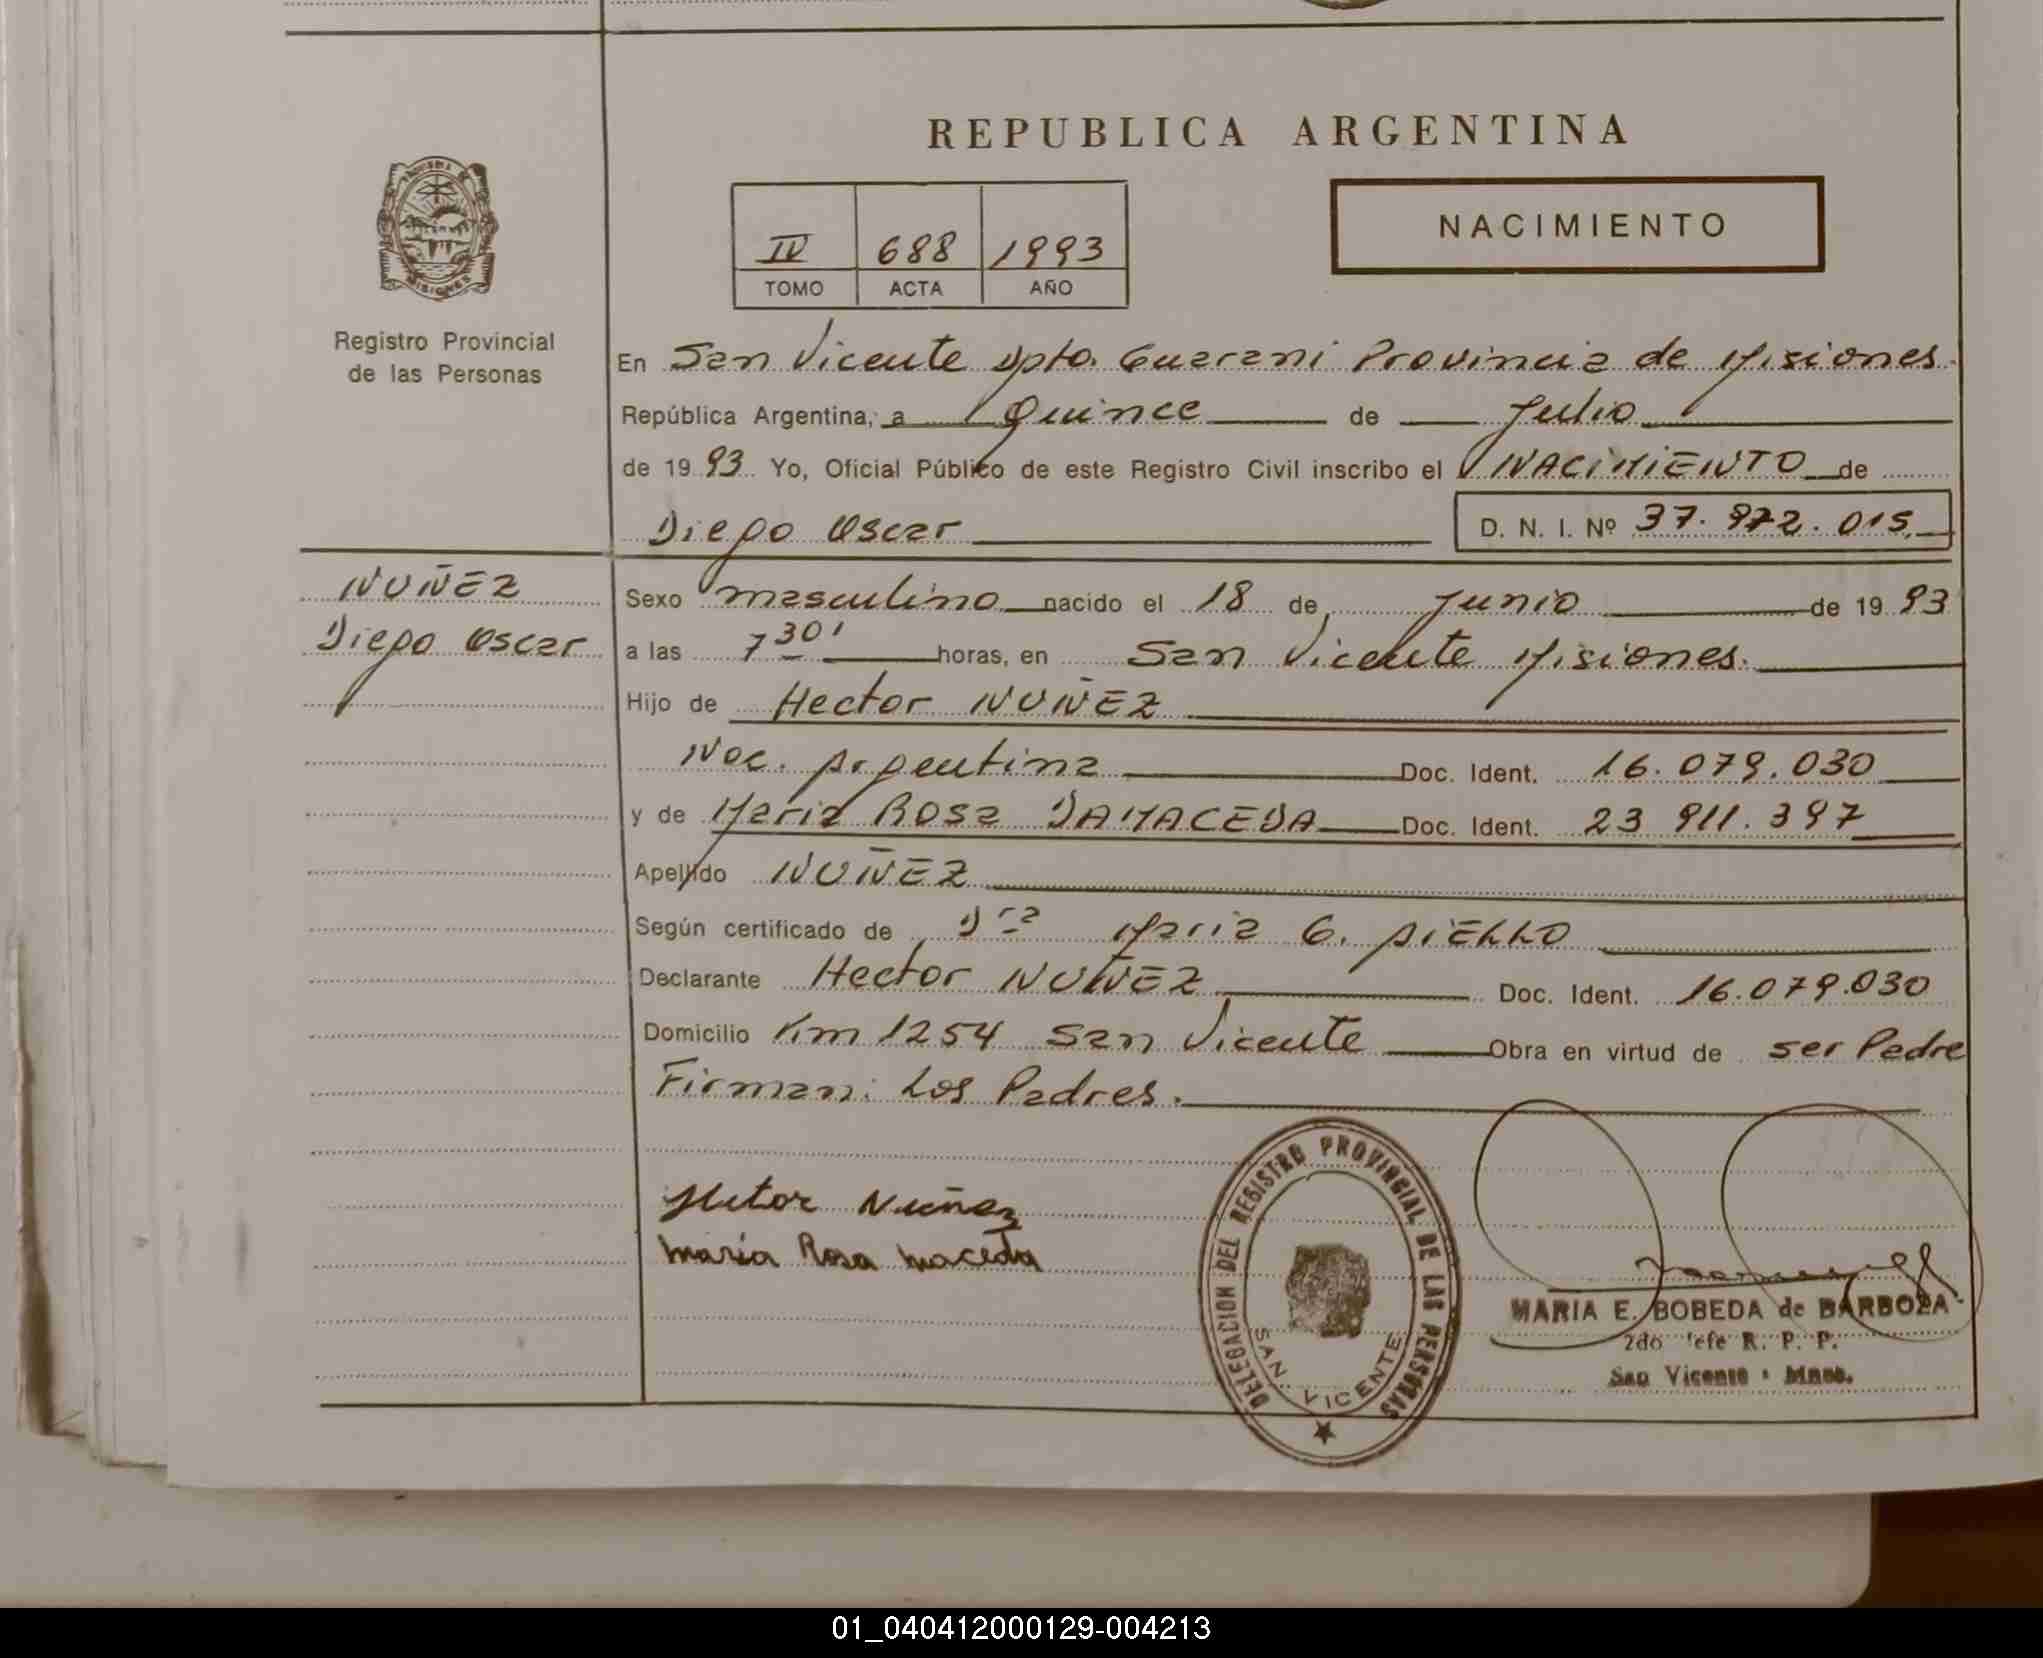 REPUBLICA ARGENTINA
NACIMIENTO
IV 688 1993
TOMO ACTA AÑO
Registro Provincial
de las Personas
En San Vicente Dpto. Guarani Provincia de Misiones.
República Argentina, a Quince de Julio
de 1993 Yo, Oficial Público de este Registro Civil inscribo el NACIMIENTO de
Diego Oscar D. N. I. Nº 37.972.015
NUÑEZ
Diego Oscar
Sexo masculino nacido el 18 de Junio de 1993
a las 7 30' horas, en San Vicente Misiones.
Hijo de Hector NUÑEZ
Nac. Argentina Doc. Ident. 16.079.030
y de Maria Rosa DAMACEDA Doc. Ident. 23 911.397
Apellido NUÑEZ
Según certificado de Dra Maria G. AIELLO
Declarante Hector NUÑEZ Doc. Ident. 16.079.030
Domicilio Km 1254 San Vicente Obra en virtud de ser Padre
Firman: Los Padres.
Hector Nuñez
Maria Rosa Maceda
DELEGACION DEL REGISTRO PROVINCIAL DE LAS PERSONAS
SAN VICENTE
MARIA E. BOBEDA de BARBOZA
2do Jefe R. P. P.
San Vicente - Mnes.
01_040412000129-004213